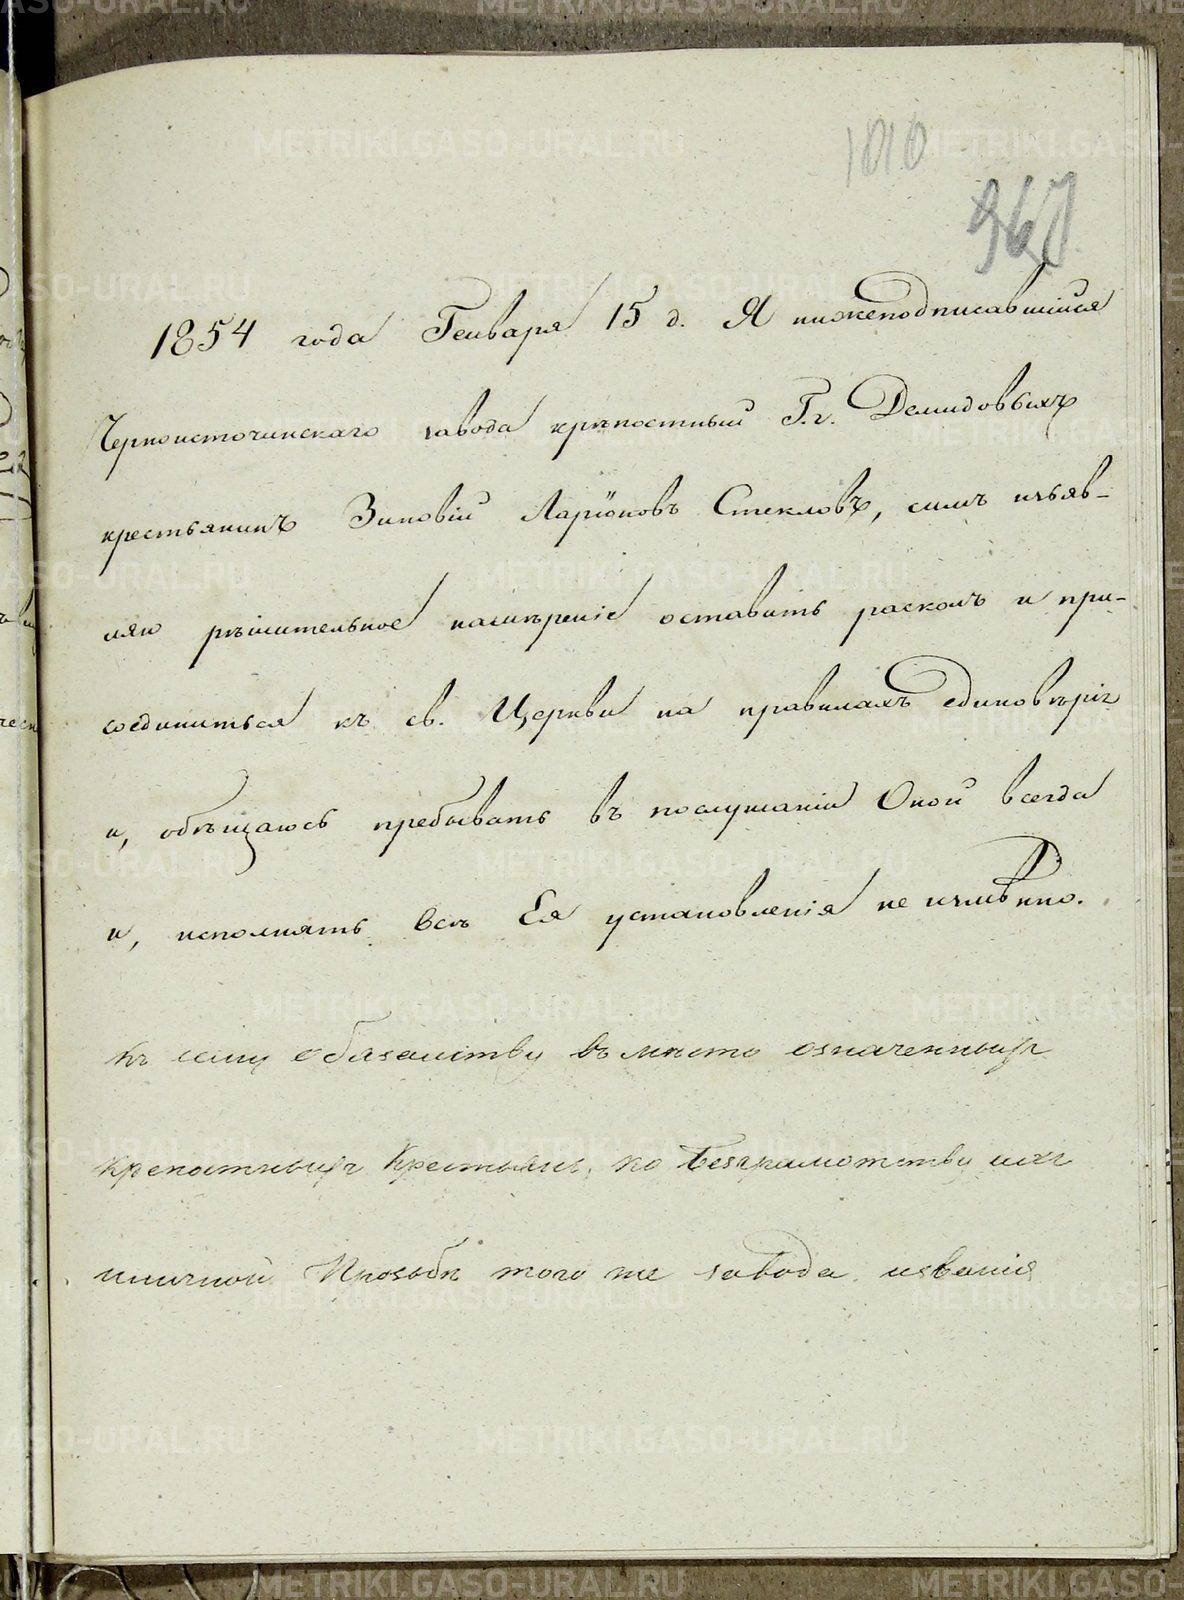 1010
967
1854 года Генваря 15 д. Я нижеподписавшійся
Черноисточинскаго завода крѣпостный Г.г. Демидовыхъ
крестьянинъ Зиновій Ларіоновъ Стекловъ, симъ изъяв-
ляю рѣшительное намѣреніе оставить расколъ и при-
соединиться къ св. Церкви на правилахъ единовѣрія
и, обѣщаюсь пребывать въ послушаніи Оной всегда
и, исполнять всѣ Ея установленія не измѣнно.
Къ сему обязаиству вместо означенныхъ
крепостныхъ Крестьянъ, по безграмотству ихъ
иличной Прозьбѣ того же завода изванія
METRIKI.GASO-URAL.RU